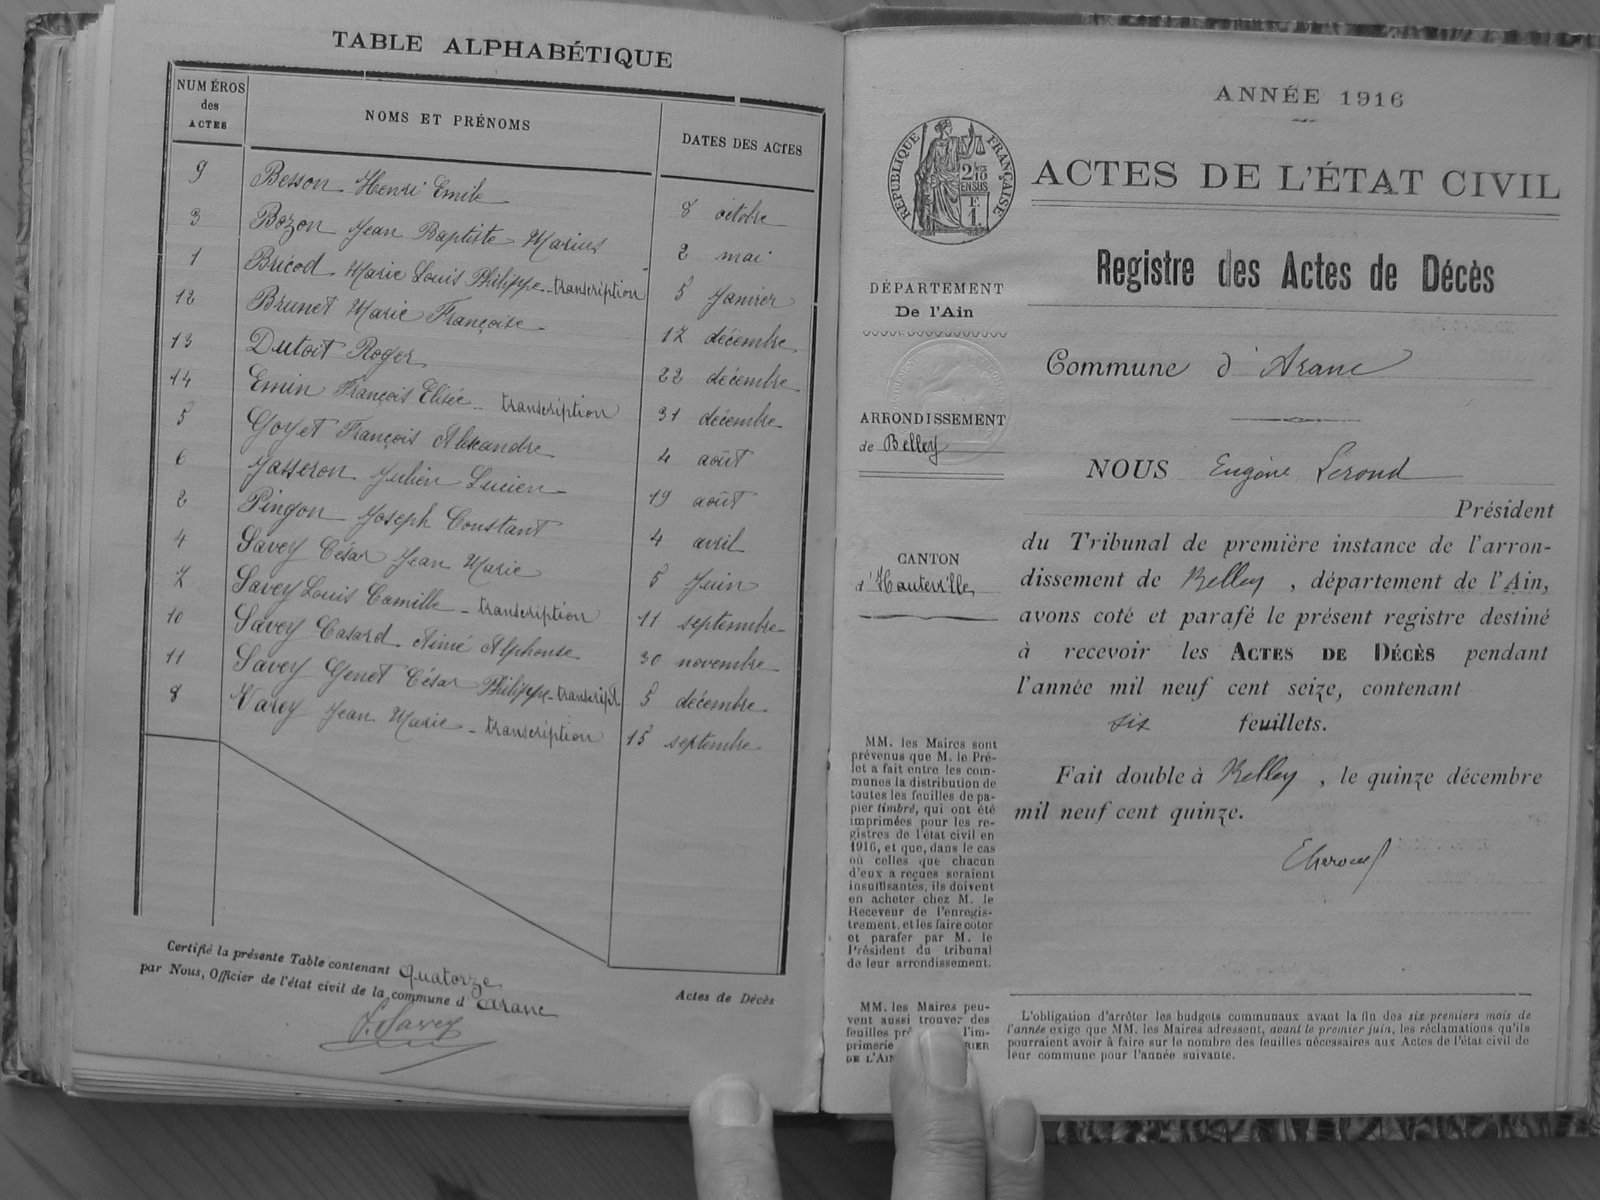 TABLE ALPHABÉTIQUE
NUMÉROS des ACTES NOMS ET PRÉNOMS DATES DES ACTES
9 Besson Henri Emile 8 octobre
3 Bozon Jean Baptiste Marius 2 mai
1 Bricod Marie Louis Philippe - transcription 5 Janvier
12 Brunet Marie Françoise 17 décembre
13 Dutoit Roger 22 décembre
14 Emin François Elisée - transcription 31 décembre
5 Goyet François Alexandre 4 août
6 Jasseron Julien Lucien 19 août
2 Pingon Joseph Constant 4 avril
4 Savey César Jean Marie 5 Juin
7 Savey Louis Camille - transcription 11 septembre
10 Savey Casard Aimé Alphonse 30 novembre
11 Savey Genet César Philippe - transcript 5 décembre
8 Varey Jean Marie - transcription 15 septembre
Certifié la présente Table contenant quatorze Actes de Décès
par Nous, Officier de l'état civil de la commune d'Aranc
Savey
ANNÉE 1916
RÉPUBLIQUE FRANÇAISE
2/10 EN SUS
F. 1.
ACTES DE L'ÉTAT CIVIL
Registre des Actes de Décès
DÉPARTEMENT
De l'Ain
Commune d'Aranc
ARRONDISSEMENT
de Belley
NOUS Eugène Lerond
Président
du Tribunal de première instance de l'arron-
dissement de Belley, département de l'Ain,
avons coté et parafé le présent registre destiné
à recevoir les ACTES DE DÉCÈS pendant
l'année mil neuf cent seize, contenant
six feuillets.
Fait double à Belley, le quinze décembre
mil neuf cent quinze.
CANTON
d'Hauteville
MM. les Maires sont
prévenus que M. le Pré-
fet a fait entre les com-
munes la distribution de
toutes les feuilles de pa-
pier timbré, qui ont été
imprimées pour les re-
gistres de l'état civil en
1916, et que, dans le cas
où celles que chacun
d'eux a reçues seraient
insuffisantes, ils doivent
en acheter chez M. le
Receveur de l'enregis-
trement, et les faire coter
et parafer par M. le
Président du tribunal
de leur arrondissement.
MM. les Maires peu-
vent aussi trouver des
feuilles l'im-
primerie
DE L'AIN
L'obligation d'arrêter les budgets communaux avant la fin des six premiers mois de
l'année exige que MM. les Maires adressent, avant le premier juin, les réclamations qu'ils
pourraient avoir à faire sur le nombre des feuilles nécessaires aux Actes de l'état civil de
leur commune pour l'année suivante.